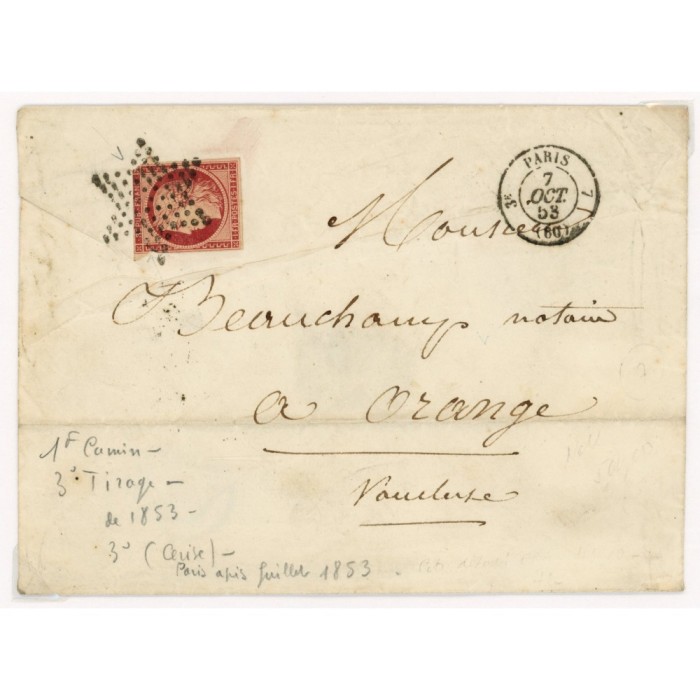 PARIS
3E 7 7
OCT.
53
(60)
Monsieur
Beauchamp notaire
a Orange
Vaucluse
1F Carmin -
3e Tirage -
de 1853 -
3e (Cerise) -
Paris après Juillet 1853 .